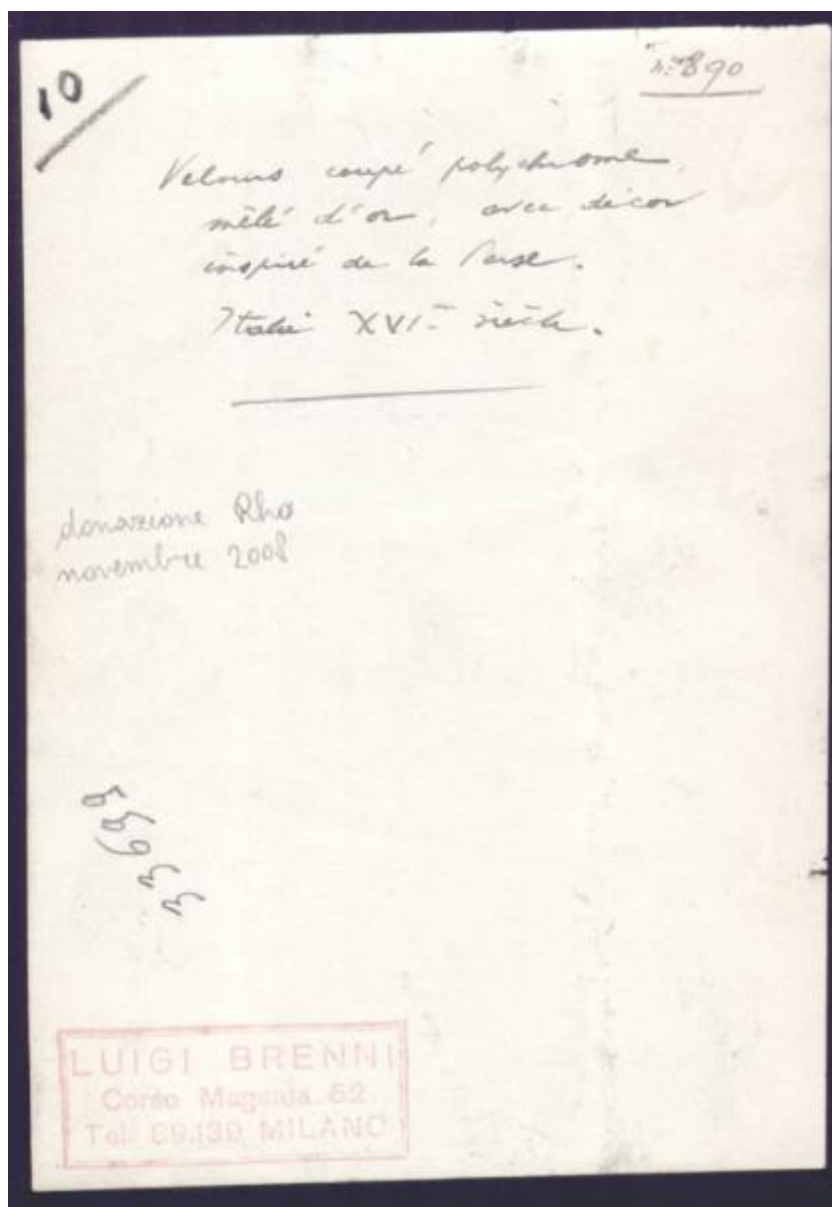 10
n:º 890
Velours coupé polychrome,
mêlé d'or, avec décor
inspiré de la Perse.
Italie XVIe siècle.
donazione Rho
novembre 2008
LUIGI BRENNI
Corso Magenta 52
Tel. 89.130 MILANO